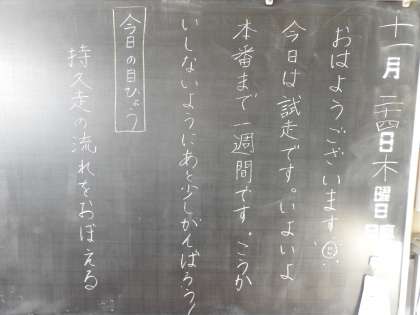 十一月二十四日木曜日
おはようございます
今日は試走です。いよいよ
本番まで一週間です。こうか
いしないようにあと少しがんばろう！
今日の目ひょう
持久走の流れをおぼえる